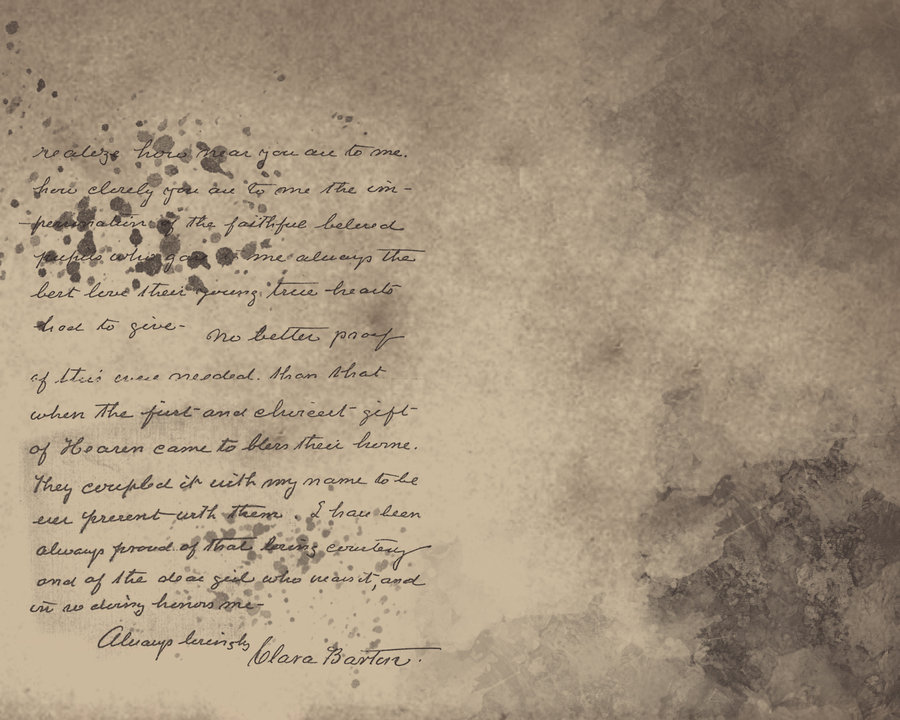 realize how near you are to me.
how closely you are to me the im-
-personation of the faithful beloved
pupils who gave to me always the
best love their young true hearts
had to give-
No better proof
of this were needed. than that
when the first and choicest gift
of Heaven came to bless their home.
They coupled it with my name to be
ever present with them. I have been
always proud of that loving courtesy
and of the dear girl who wears it, and
in so doing honors me-
Always lovingly
Clara Barton.